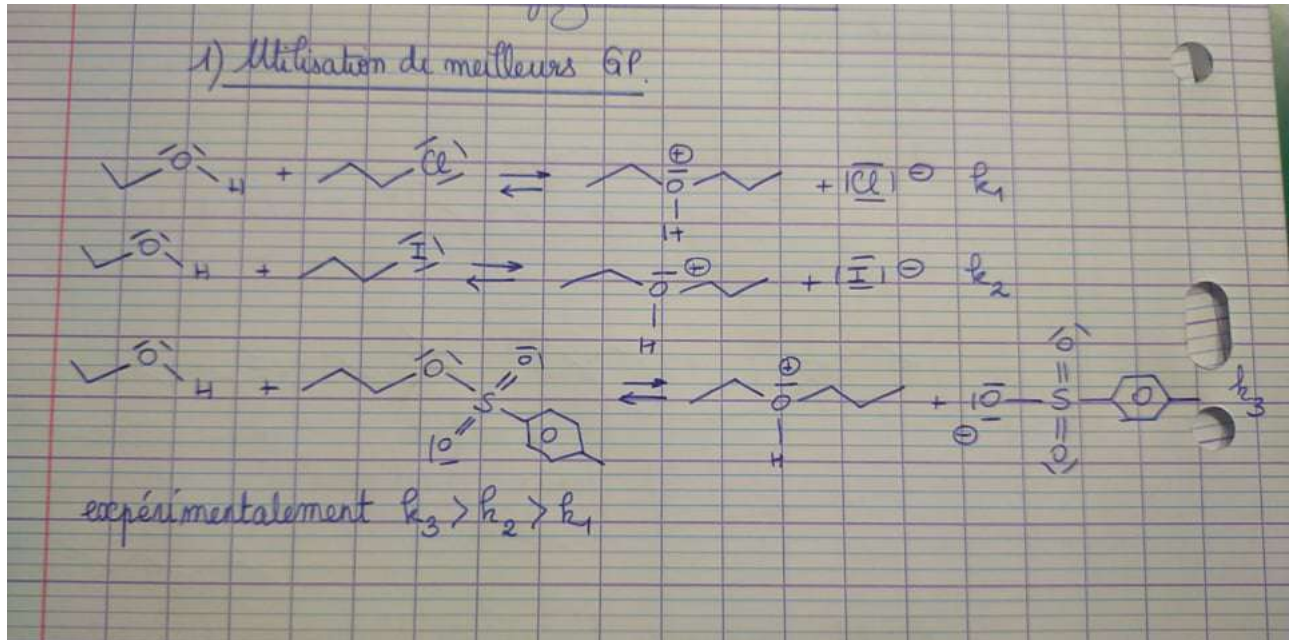 1) Utilisation de meilleurs GP.
O H + Cl ⇌ ⊕ O H + |Cl| ⊖ k1
O H + I ⇌ O ⊕ H + |I| ⊖ k2
O H + O S O O ⇌ ⊕ O H + |O ⊖ S O O k3
expérimentalement k3 > k2 > k1